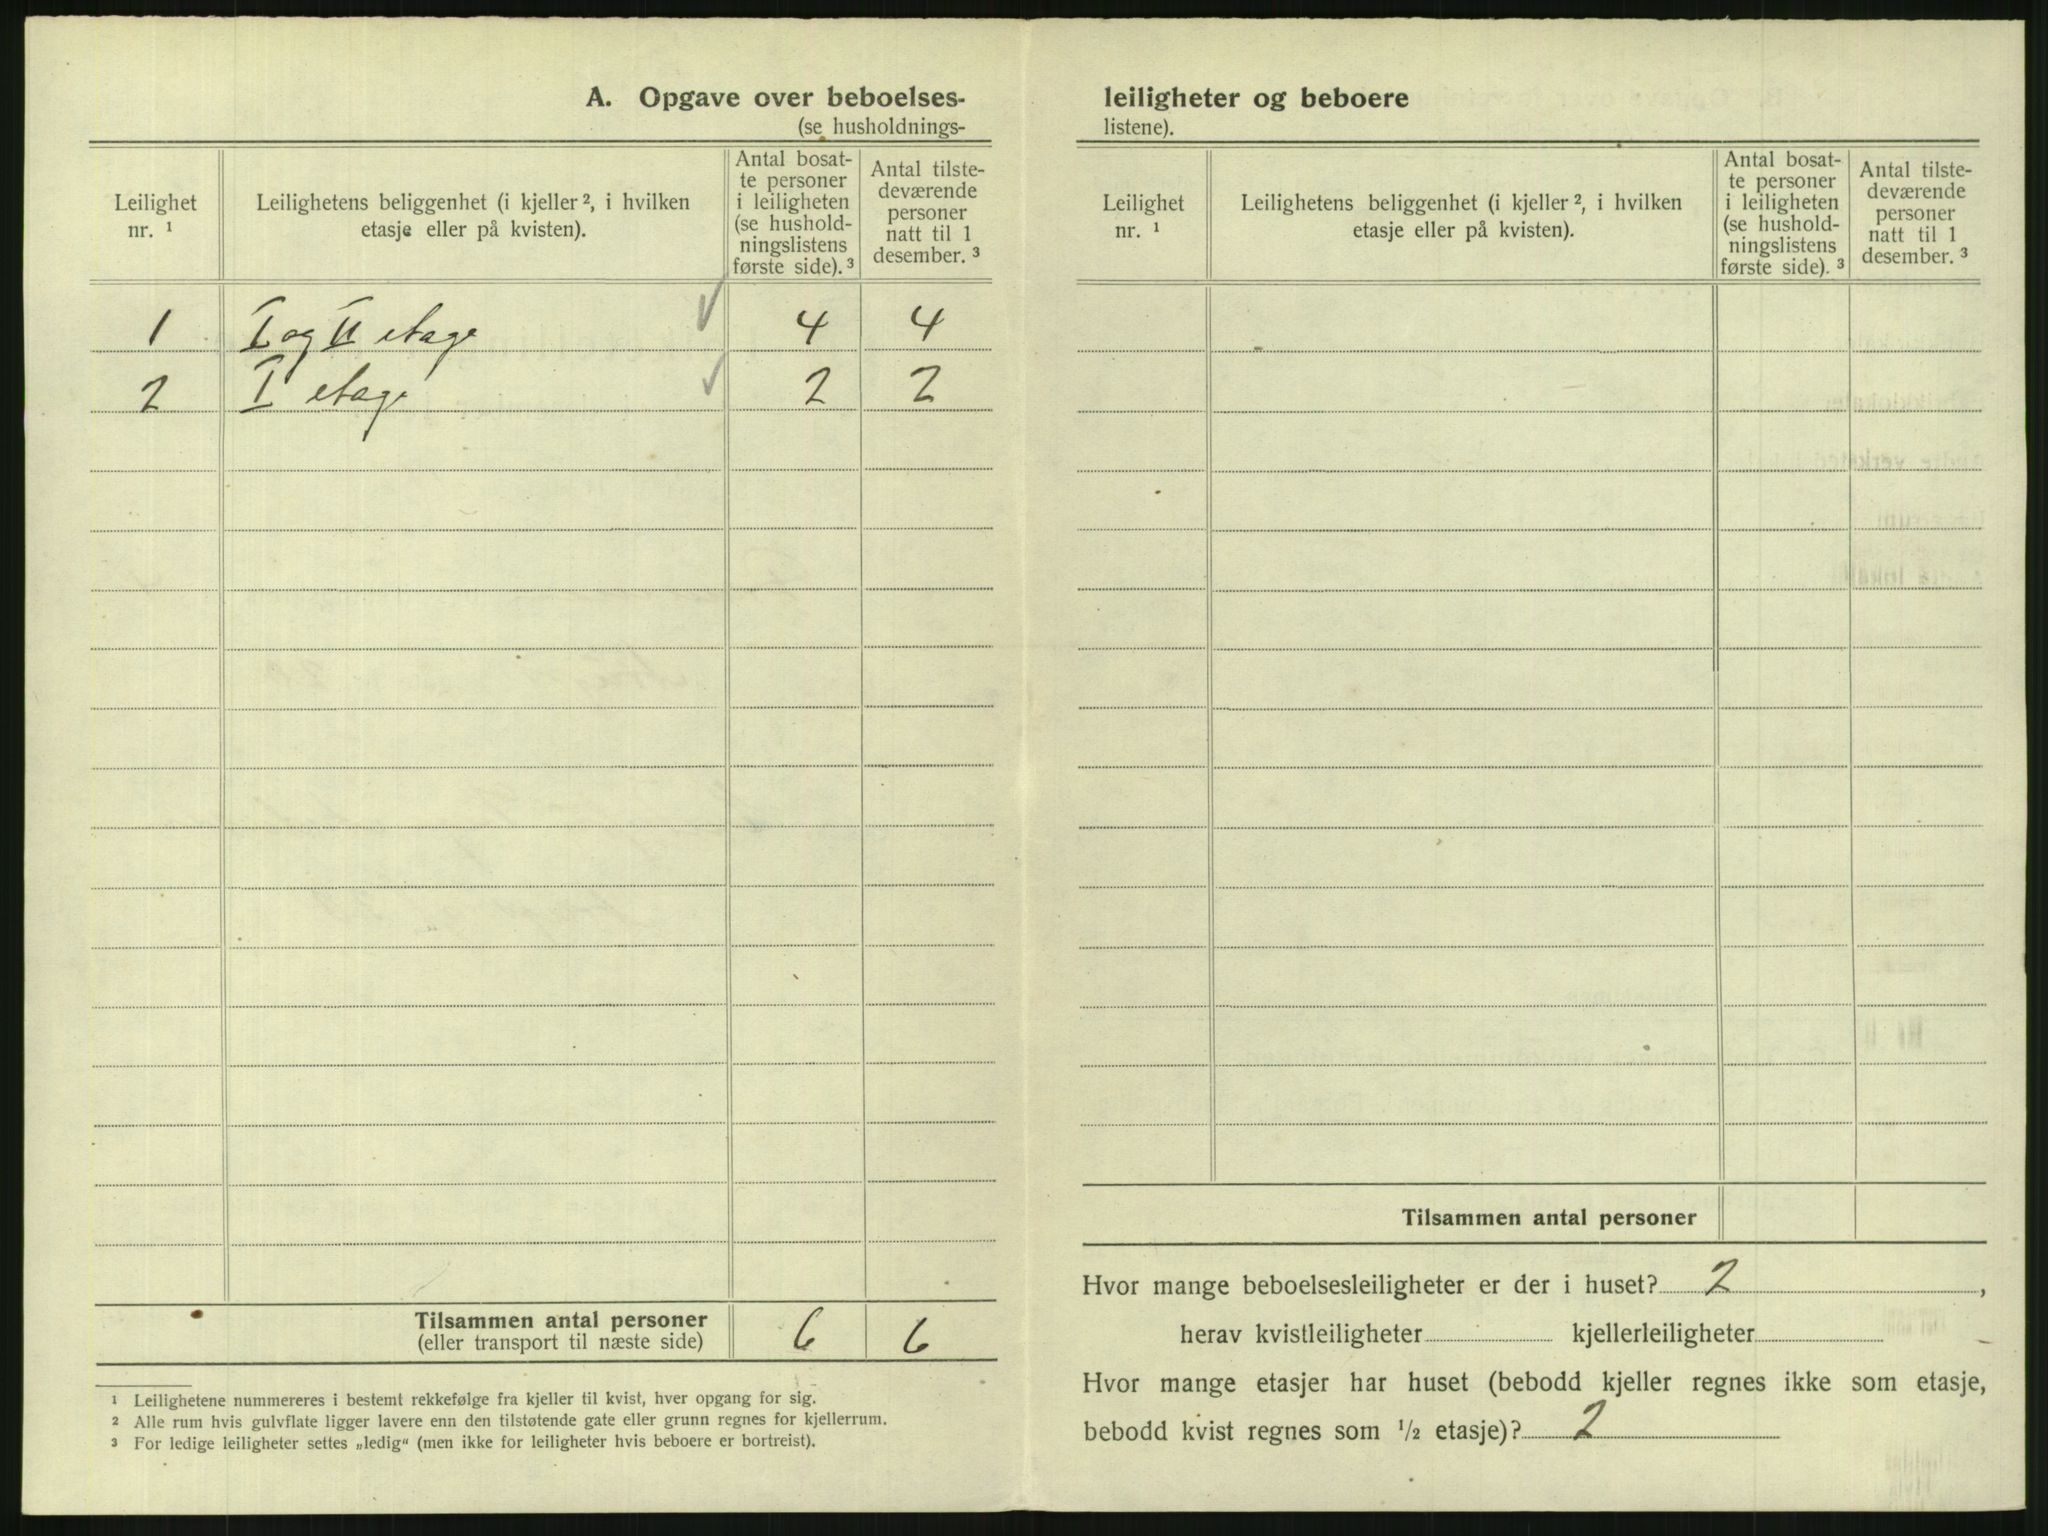 A. Opgave over beboelses-
(se husholdnings-
Leilighet
nr. ¹
Leilighetens beliggenhet (i kjeller ², i hvilken
etasje eller på kvisten).
Antal bosat-
te personer
i leiligheten
(se hushold-
ningslistens
første side). ³
Antal tilste-
deværende
personer
natt til 1
desember. ³
1 I og II etage 4 4
2 I etage 2 2
Tilsammen antal personer
(eller transport til næste side)
6 6
¹ Leilighetene nummereres i bestemt rekkefølge fra kjeller til kvist, hver opgang for sig.
² Alle rum hvis gulvflate ligger lavere enn den tilstøtende gate eller grunn regnes for kjellerrum.
³ For ledige leiligheter settes „ledig“ (men ikke for leiligheter hvis beboere er bortreist).
leiligheter og beboere
listene).
Leilighet
nr. ¹
Leilighetens beliggenhet (i kjeller ², i hvilken
etasje eller på kvisten).
Antal bosat-
te personer
i leiligheten
(se hushold-
ningslistens
første side). ³
Antal tilste-
deværende
personer
natt til 1
desember. ³
Tilsammen antal personer
Hvor mange beboelsesleiligheter er der i huset? 2 ,
herav kvistleiligheter kjellerleiligheter
Hvor mange etasjer har huset (bebodd kjeller regnes ikke som etasje,
bebodd kvist regnes som ½ etasje)? 2